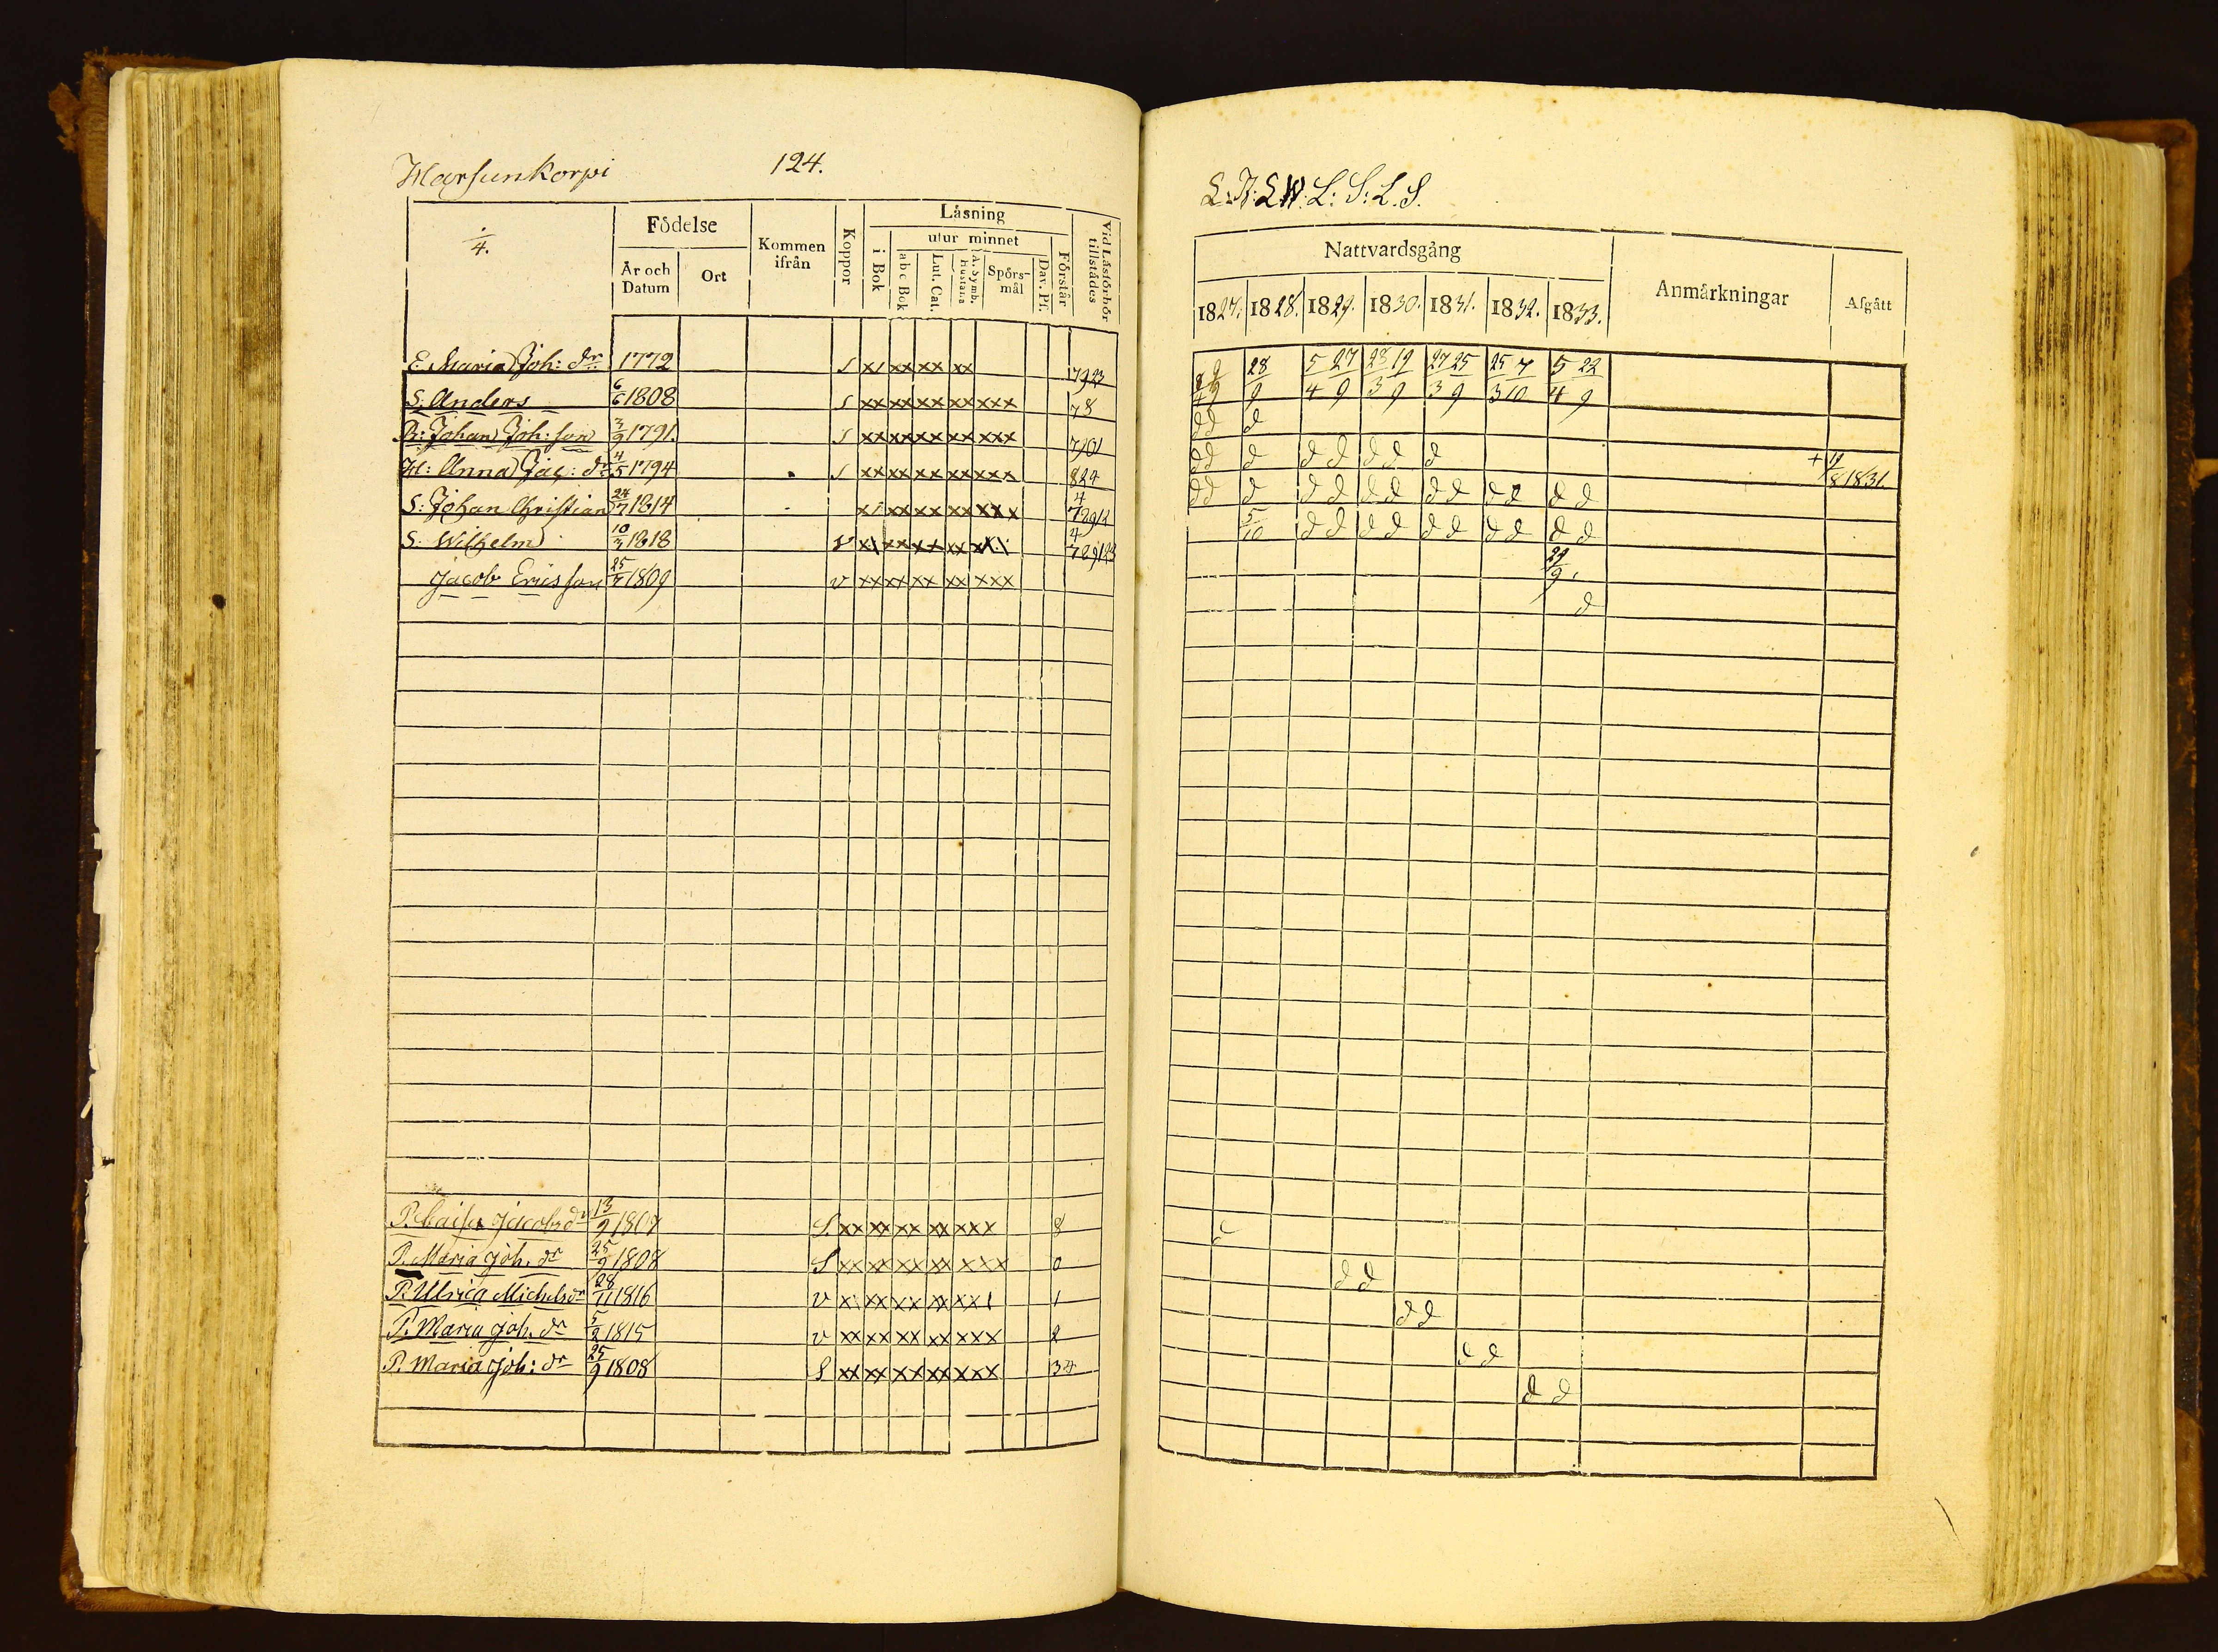 Harsunkorpi 124.
1/4.
Födelse
År och Datum
Ort
Kommen ifrån
Koppor
Låsning
i Bok
utur minnet
abc Bok
Lut. Cat.
A. Symb. Hustafla
Spörsmål
Dav. Ps.
Förstår
Vid Låsförhör tillstådes
E. Maria Joh: dr. 1772 S x/ xx xx xx 7923
S. Anders 6/6 1808 S xx xx xx xx xxx 78
B: Johan Joh: son 3/9 1791. S xx xx xx xx xxx 7901
H: Anna Jac: dr 4/5 1794 S xx xx xx xx xxx 824
S: Johan Christian 24/7 1814 x/ xx xx xx xxx 4 78912
S. Wilhelm 10/3 1818 v x\ xx xx xx 4 789123
Jacob Ericsson 25/7 1809 v xx xx xx xx xxx
P. Caisa Jacobsdr 13/9 1807 S. xx xx xx xx xxx 8
P. Maria Joh. dr 25/9 1808 S xx xx xx xx xxx 0
P. Ulrica Michelsdr 28/11 1816 v x\ xx xx xx xx1 1
P. Maria Joh. dr 5/2 1815 v xx xx xx xx xxx 2
P. Maria Joh: dr 25/9 1808 S xx xx xx xx xxx 34
L: J: L W: L: S: L. S.
Nattvardsgång
Anmårkningar
Afgått
1827. 1828. 1829. 1830. 1831. 1832. 1833.
28/9 5/4 27/9 28/3 19/9 27/3 25/9 25/3 7/10 5/4 22/9
dd d
dd d dd dd d + 19/8 1831.
dd d dd dd dd dd dd
5/10 dd dd dd dd dd
29/9.
d
dd
dd
dd
dd